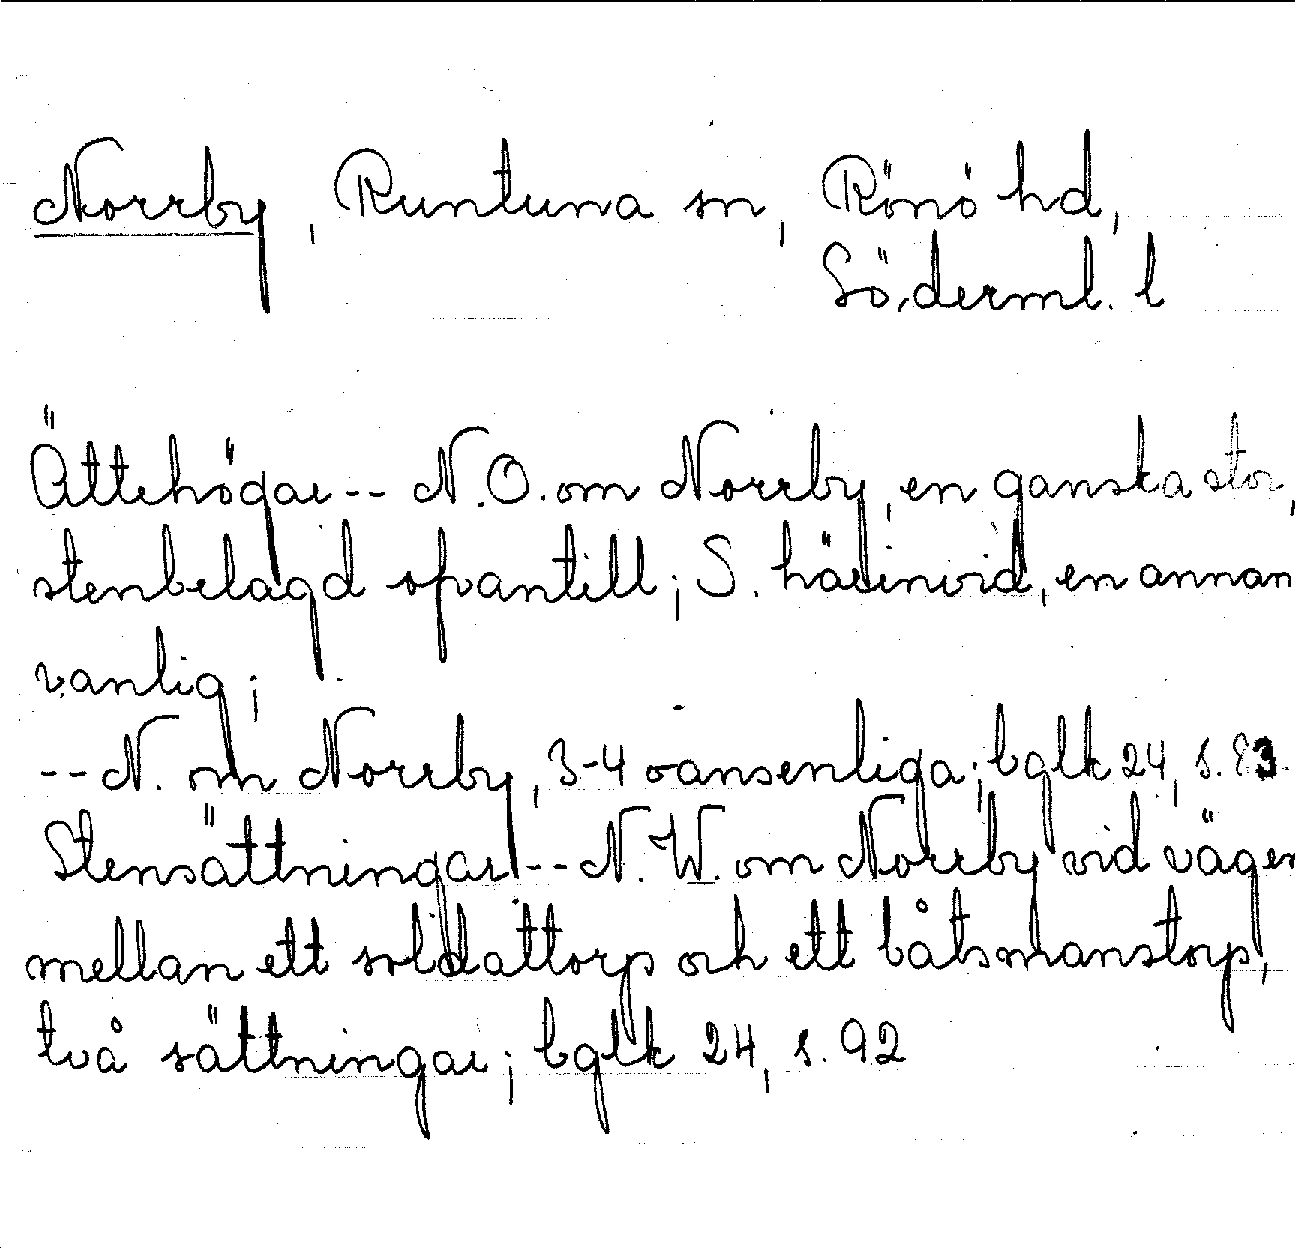 Norrby, Runtuna sn, Rönö hd,
Söderml. l
Ättehögar -- N.O. om Norrby, en ganska stor,
stenbelagd ofvantill; S. härinvid, en annan
vanlig;
-- N. om Norrby, 3-4 oansenliga; bglk 24, s. 83
Stensättningar -- N.W. om Norrby vid vägen
mellan ett soldattorp och ett båtsmanstorp,
två sättningar; bglk 24, s. 92